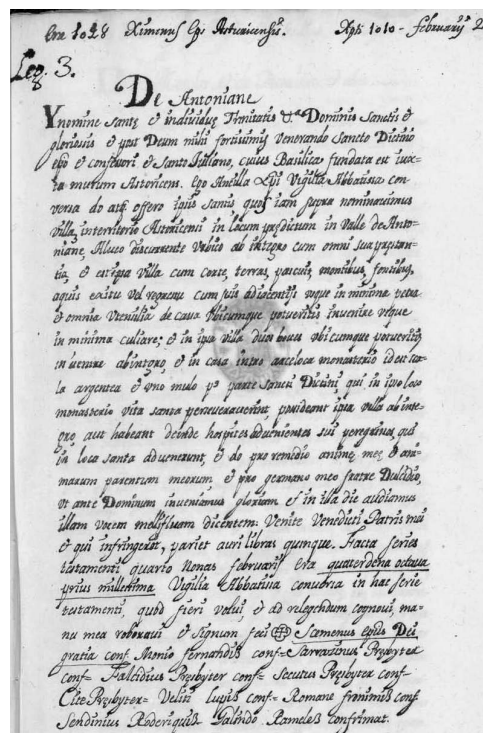 Era 1048 Ximenus Eps Asturicensis. Xpti 1010 - februarij 2
Leg. 3.
De Antoniane
Ynomine Sante et individue Trinitatis Dominus Sanctis et
gloriosis et post Deum mihi fortissimis Venerando Sancto Dictino
epo et confessori et Santo Juliano, cuius Basilica fundata est iux-
ta murum Astoricens. Ego Ancilla Xpi Vigilia Abbatissa con-
versa do atq offero ipsis Sanctis quos iam supra nominavimus
villa, in territorio Astoricensi in locum predictum in Valle de Anto-
niane, Alveo discurrente Urbico ab integro cum omni sua prestan-
tia, et ipsa Villa cum corte, terras, pascuis, montibus, fontibus,
aquis exitu vel regressu cum suis adiacentijs usque in minima petra
et omnia Utensilia de casa Ubicumque potueritis invenire usque
in minima culiare; et in ipsa villa duos boves ubicumque potueritis
invenire ab integro, et in casa intro monasterio
la argentea et uno mulo pº parte Sancti Dictini, qui in ipso loco
monasterio vita santa perseveraverint, possideant ipsa villa ab inte-
gro, aut habeant deinde hospites advenientes sui peregrinos, qui
in loca santa advenerunt, et do pro remedio anime mee et ani-
marum parentum meorum et pro germano meo fratre Dulcidio,
ut ante Dominum inveniamus gloriam et in illa die audiamus
illam vocem mellifluam dicentem: Venite Venedicti Patris mei
et qui infringerit, pariet auri libras quinque. Facta series
testamenti quarto Nonas februarij Era quaterdena octava
prius millesima Vigilia Abbatissa conversa in hac serie
testamenti, quod fieri volui, et ad relegendum cognovi, ma-
nu mea roboravi et signum feci Scemenus epus Dei
gratia conf. Monio fernandis conf= Sarracinus Presbyter
conf= Falcidius Presbyter conf= Secutus Presbyter conf-
Cite Presbyter= Veliti Lupis conf= Romane fronimis conf
Sendinius Roderiquis Galindo Ramelis confirmat.